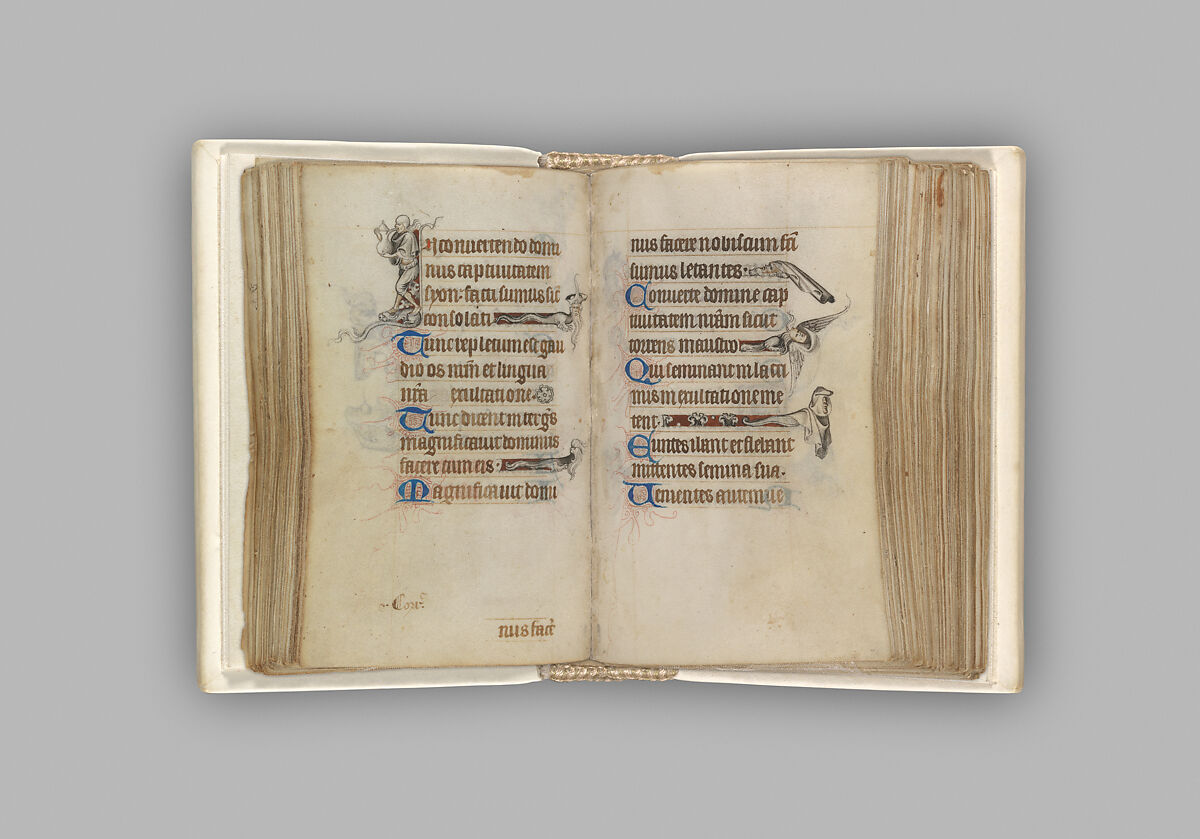 In conuertendo domi
nus captiuitatem
syon: facti sumus sic̄
consolati
Tunc repletum est gau
dio os nr̄m et lingua
nr̄a exultatione
Tunc dicent inter gēs
magnificauit dominus
facere cum eis.
Magnificauit domi
Cor̄
nus fac̄e
nus facere nobiscum fc̄i
sumus letantes.
Conuerte domine cap
tiuitatem nr̄am sicut
torrens in austro
Qui seminant in lacri
mis in exultatione me
tent.
Euntes ibant et flebant
mittentes semina sua.
Uenientes autem ue